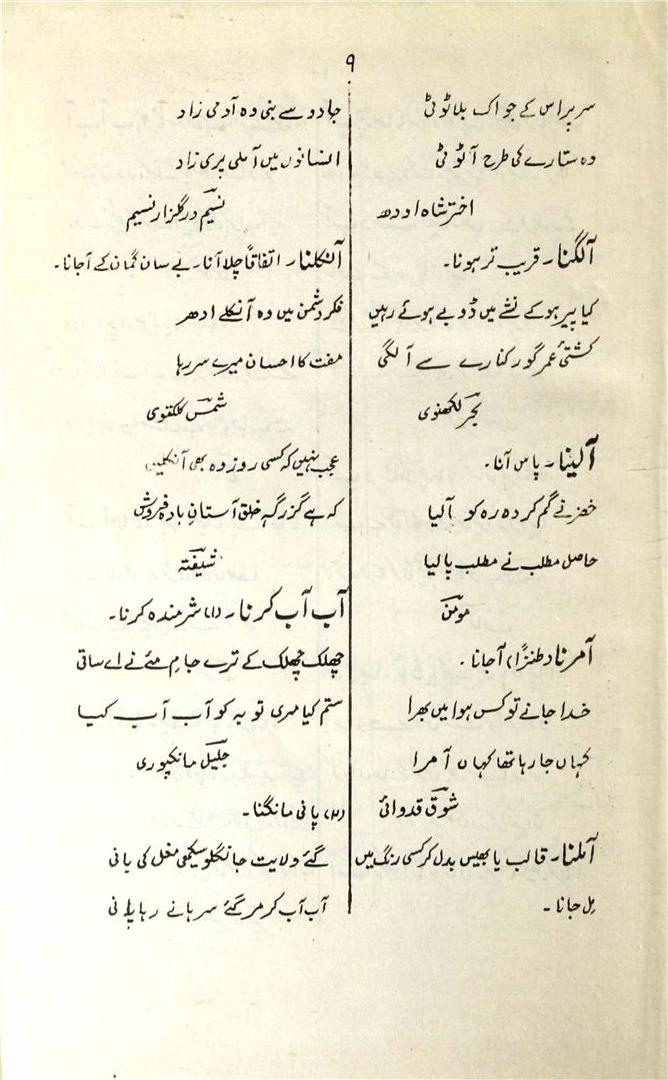 ۹
سر پر اس کے جو اک بلا ٹوٹی
وہ ستارے کی طرح آ ٹوٹی
اختر شاہ اودھ
آلگنا۔ قریب تر ہونا۔
کیا پیر ہو کے نشے میں ڈوبے ہوئے رہیں
کشتیٔ عمر گور کنارے سے آ لگی
بحر لکھنوی
آلینا۔ پاس آنا۔
خضر نے گم کردہ رہ کو آلیا
حاصل مطلب نے مطلب پالیا
مومن
آمرنا (طنزًا) آجانا۔
خدا جانے تو کس ہوا میں بھرا
کہاں جا رہا تھا کہاں آ مرا
شوق قدوائی
آملنا۔ قالب یا بھیس بدل کر کسی رنگ میں
مل جانا۔
جادو سے بنی وہ آدمی زاد
انسانوں میں آ ملی پری زاد
نسیم در گلزار نسیم
آنکلنا۔ اتفاقاً چلا آنا۔ بے سان گمان کے آجانا۔
فکر دشمن میں وہ آنکلے ادھر
مفت کا احسان میرے سر رہا
شمس کلکتوی
عجب نہیں کہ کسی روز وہ بھی آنکلیں
کہ ہے گزرگہِ خلق آستانِ بادہ فروش
شیفتہ
آب آب کرنا۔ (۱) شرمندہ کرنا۔
چھلک چھلک کے ترے جامِ مئے نے اے ساقی
ستم کیا مری توبہ کو آب آب کیا
جلیل مانکپوری
(۲) پانی مانگنا۔
گئے ولایت جانگلو سیکھی مغل کی بانی
آب آب کر مر گئے سرہانے رہا پانی